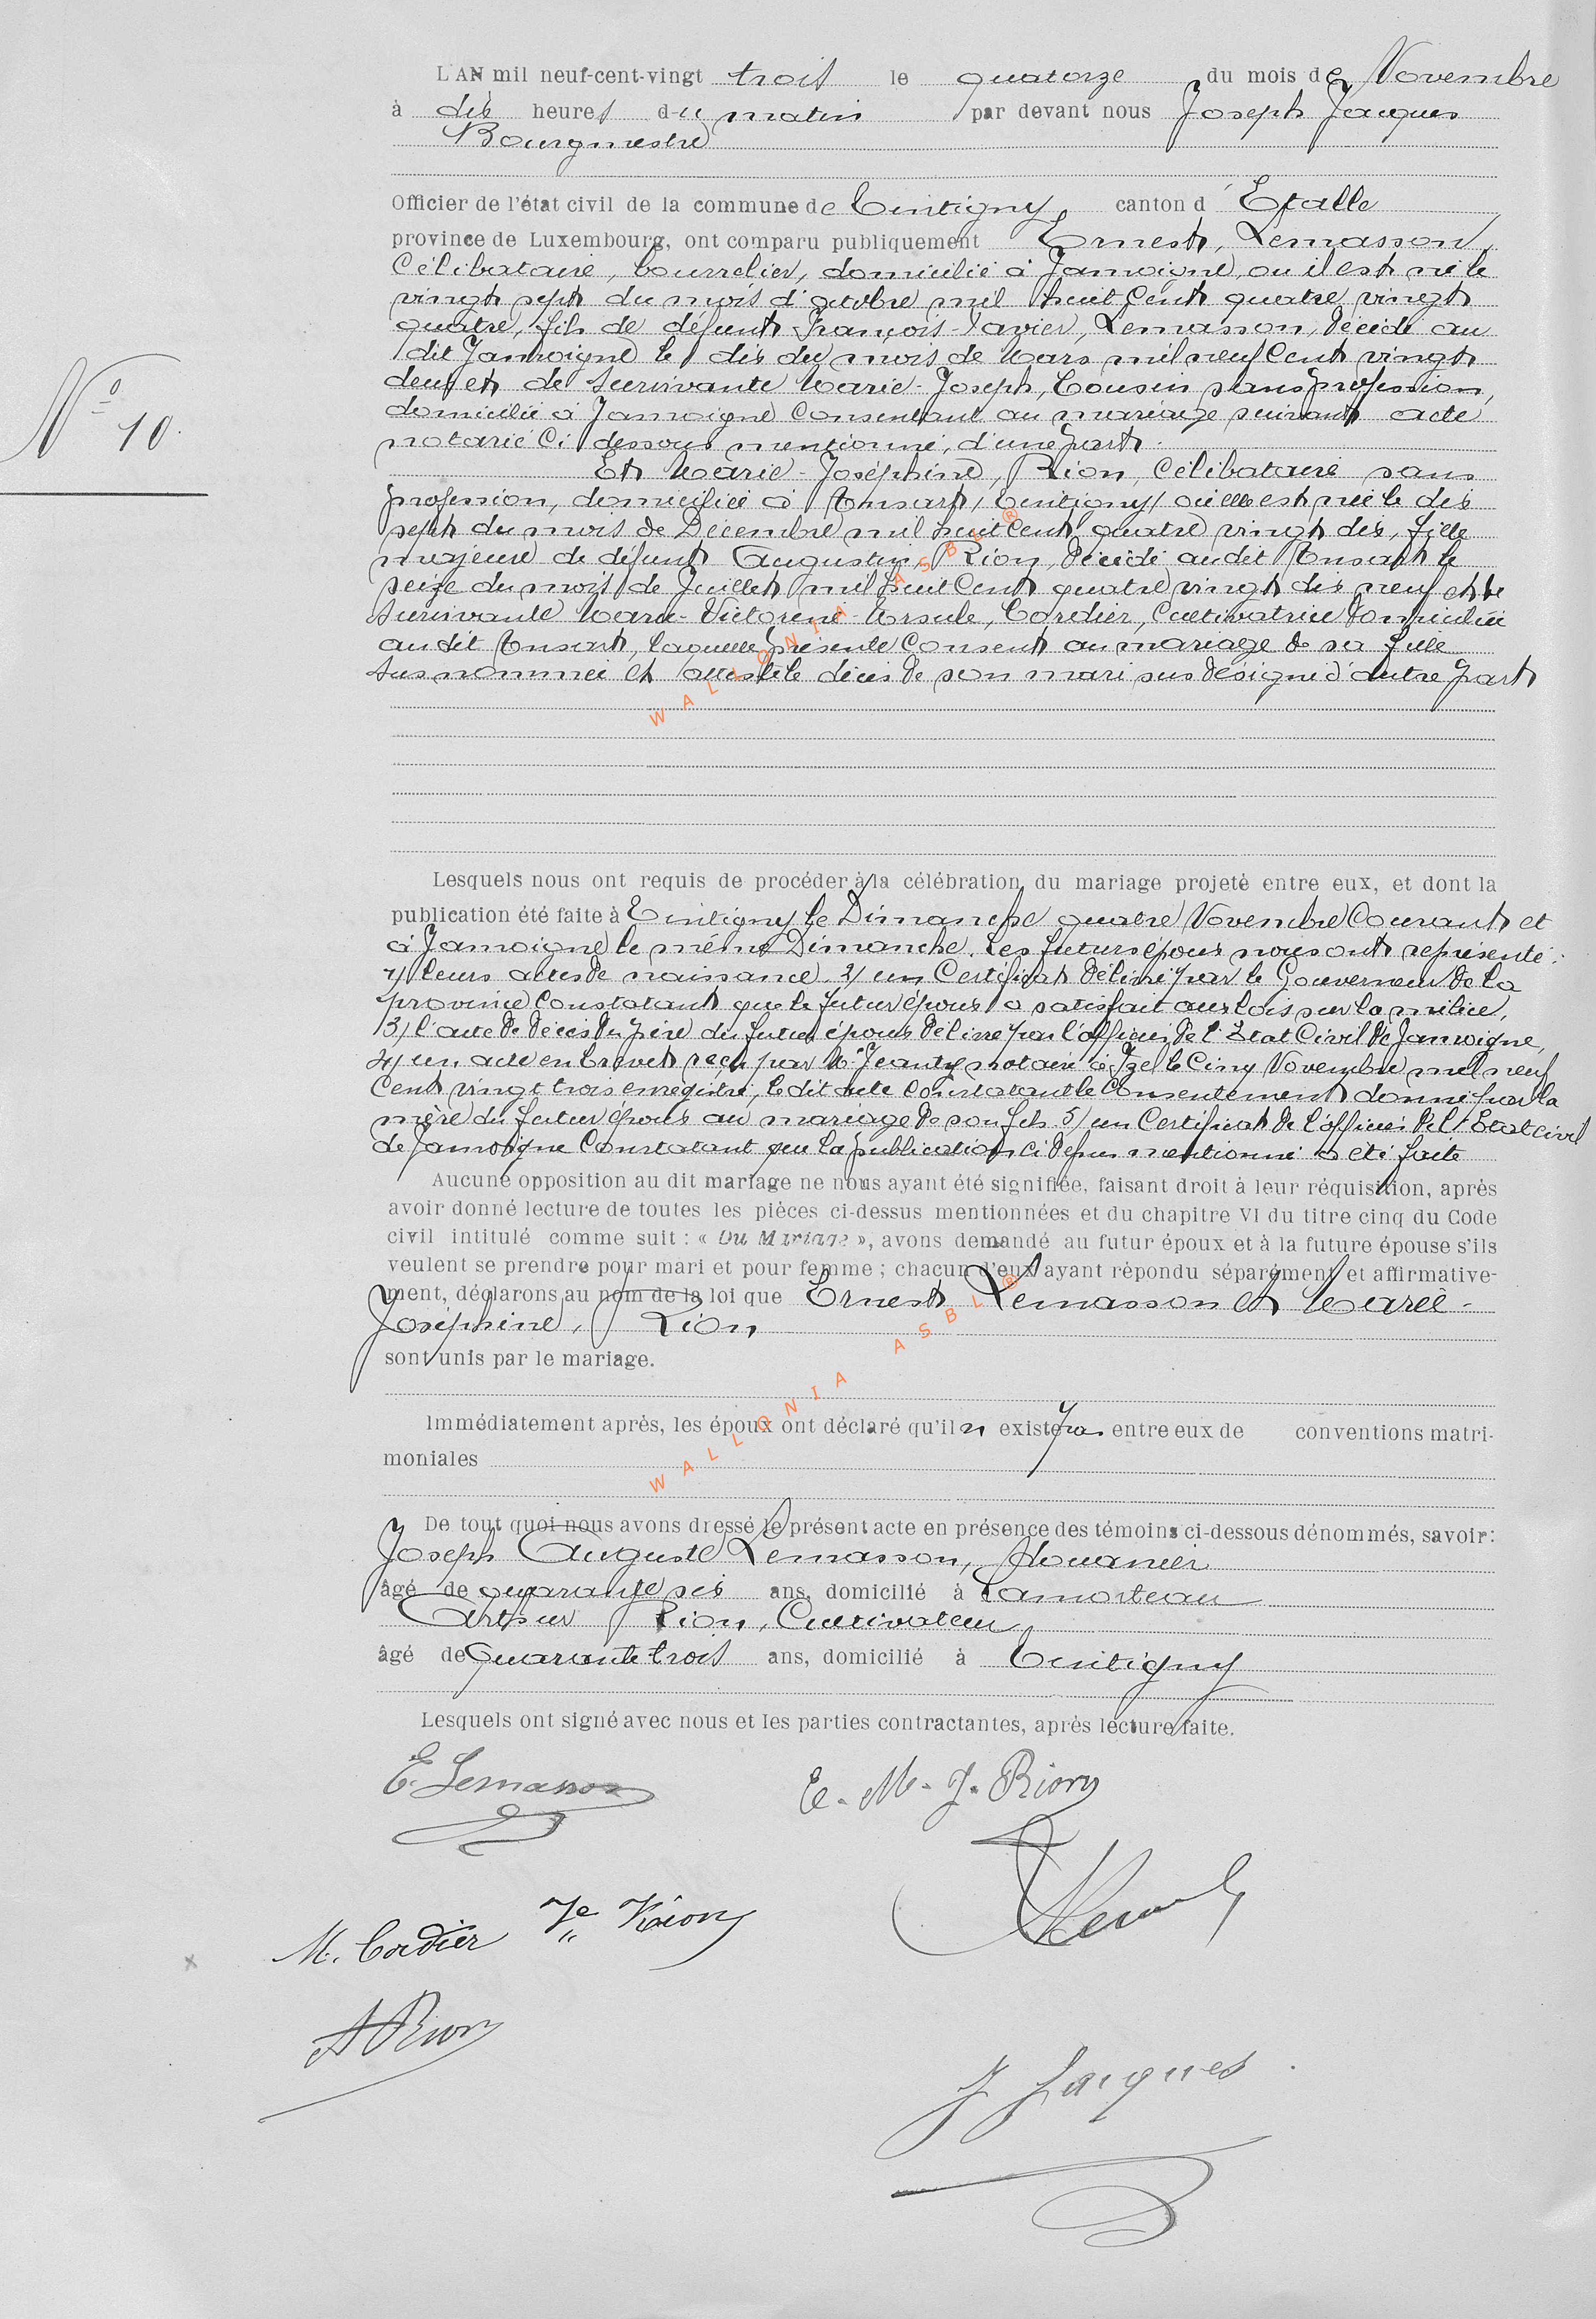 L'AN mil neuf-cent-vingt trois le quatorze du mois de Novembre
à dix heures du matin par devant nous Joseph Jacques
Bourgmestre
Officier de l'état civil de la commune de Tintigny, canton d'Etalle
province de Luxembourg, ont comparu publiquement Ernest, Lemasson,
Célibataire, bourrelier, domicilié à Jamoigne, ou il est né le
vingt sept du mois d'octobre mil huit cent quatre vingt
quatre, fils de défunt François-Xavier, Lemasson, décédé au
dit Jamoigne le dix du mois de Mars mil neuf cent vingt
deux et de survivante Marie-Joseph, Cousin sans profession,
domiciliée à Jamoigne consentant au mariage suivant acte
notarié ci dessous mentionné, d'une part.
N° 10.
Et Marie-Joséphine, Rion, célibataire sans
profession, domiciliée à Ansart, Tintigny, où elle est née le dix
sept du mois de Décembre mil huit cent quatre vingt dix, fille
majeure de défunt Augustin, Rion, décédé au dit Ansart le
seize du mois de Juillet mil huit cent quatre vingt dix neuf et de
survivante Marie-Victorine-Ursule, Cordier, cultivatrice domiciliée
au dit Ansart, laquelle présente consent au mariage de sa fille
sus nommée et atteste le décès de son mari sus désigné d'autre part
WALLONIA ASBL ®
Lesquels nous ont requis de procéder à la célébration du mariage projeté entre eux, et dont la
publication été faite à Tintigny le Dimanche quatre Novembre Courant et
à Jamoigne le même Dimanche. Les futurs époux nous ont représenté:
1/ leurs actes de naissance 2/ un Certificat délivré par le Gouverneur de la
province constatant que le futur époux a satisfait aux lois sur la milice,
3/ l'acte de décès du père du futur époux délivré par l'officier de l'Etat Civil de Jamoigne,
4/ un acte en brevet reçu par Me Jeanty notaire à Izel le Cinq Novembre mil neuf
Cent vingt trois enregistré, le dit acte constatant le consentement donné par la
mère du futur époux au mariage de son fils 5/ un Certificat de l'officier de l'Etat civil
de Jamoigne Constatant que la publication ci dessus mentionné a été faite
Aucune opposition au dit mariage ne nous ayant été signifiée, faisant droit à leur réquisition, après
avoir donné lecture de toutes les pièces ci-dessus mentionnées et du chapitre VI du titre cinq du Code
civil intitulé comme suit : « Du Mariage », avons demandé au futur époux et à la future épouse s'ils
veulent se prendre pour mari et pour femme ; chacun d'eux ayant répondu séparément et affirmative-
ment, déclarons au nom de la loi que Ernest Lemasson et Marie-
Joséphine, Rion
sont unis par le mariage.
WALLONIA ASBL ®
Immédiatement après, les époux ont déclaré qu'il n existe pas entre eux de conventions matri-
moniales
De tout quoi nous avons dressé le présent acte en présence des témoins ci-dessous dénommés, savoir:
Joseph Auguste Lemasson, douanier
âgé de quarante six ans, domicilié à Lamorteau
Arthur Rion, Cultivateur
âgé de Quarante trois ans, domicilié à Tintigny
Lesquels ont signé avec nous et les parties contractantes, après lecture faite.
E. Lemasson
M. J. Rion
M. Cordier Ve Rion
A Rion
J Jacques